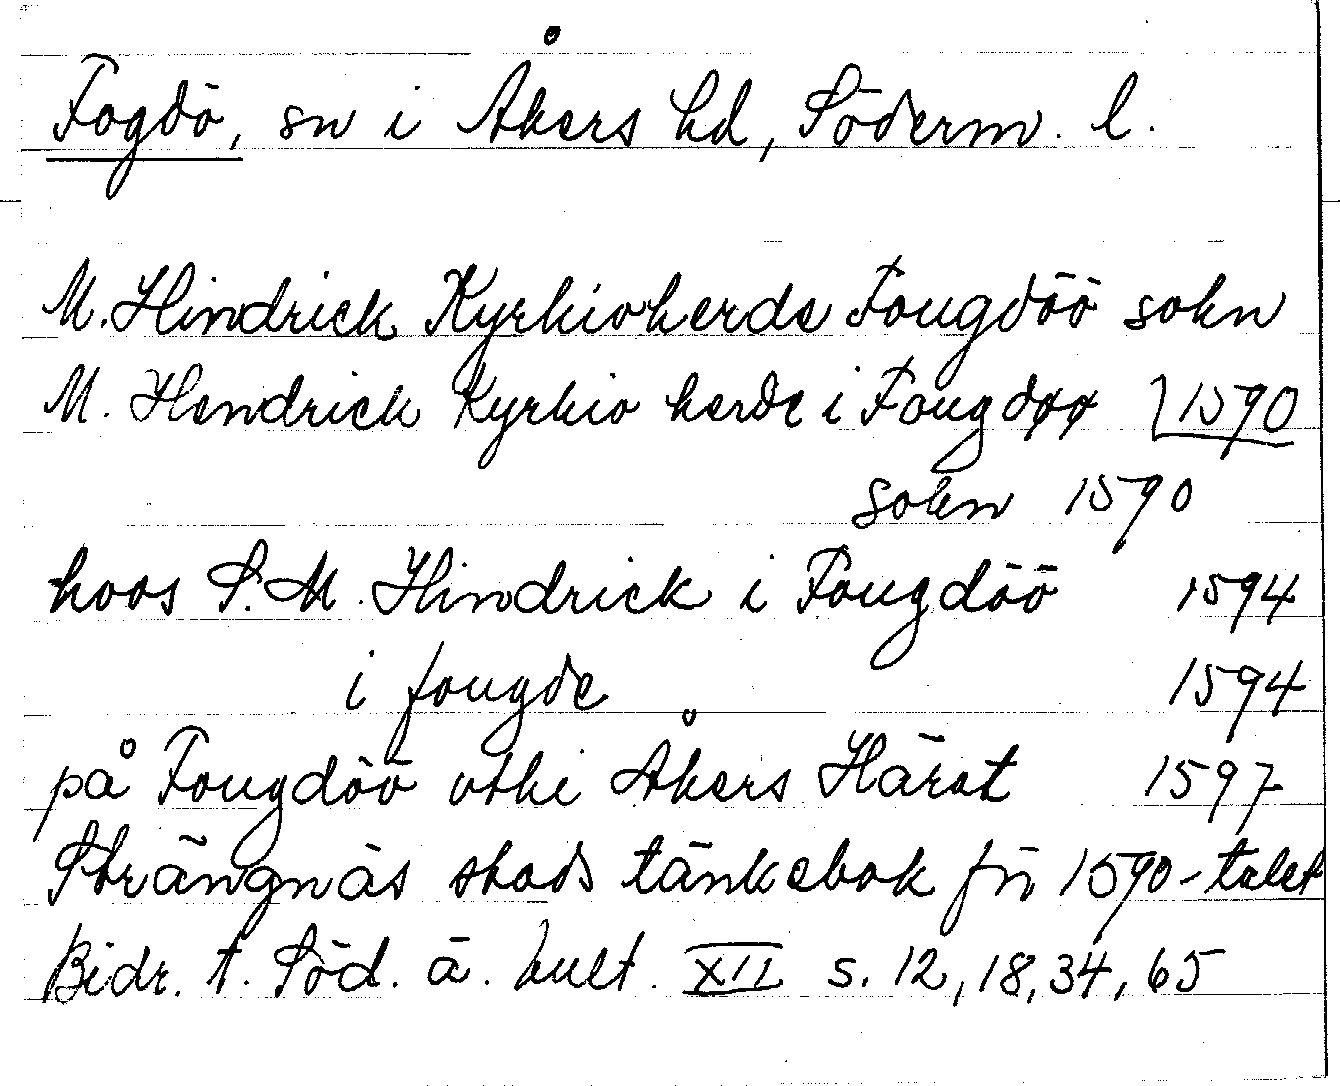 Fogdö, sn i Åkers hd, Söderm. l.
M. Hindrick Kyrkioherde Fougdöö sokn
M. Hendrick Kyrkio herde i Fougdøø 1590
sokn 1590
hoos S. M. Hindrick i Fougdöö 1594
i fougde 1594
på Fougdöö vthi Åkers Häret 1597
Strängnäs stads tänkebok frn 1590-talet
Bidr. t. Söd. ä. kult. XII s. 12, 18, 34, 65